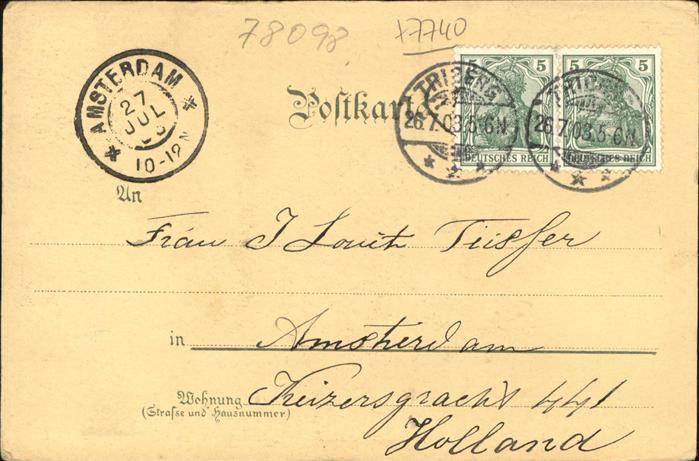 78098 x7740
AMSTERDAM
27
JUL
03
10-12 N
Postkarte
TRIBERG
26.7.03.5-6N
5 5
DEUTSCHES REICH
TRIBERG
26.7.03.5-6N
5 5
DEUTSCHES REICH
An
Frau J Louis
in Amsterdam
Wohnung Keizersgracht 441
(Straße und Hausnummer)
Holland